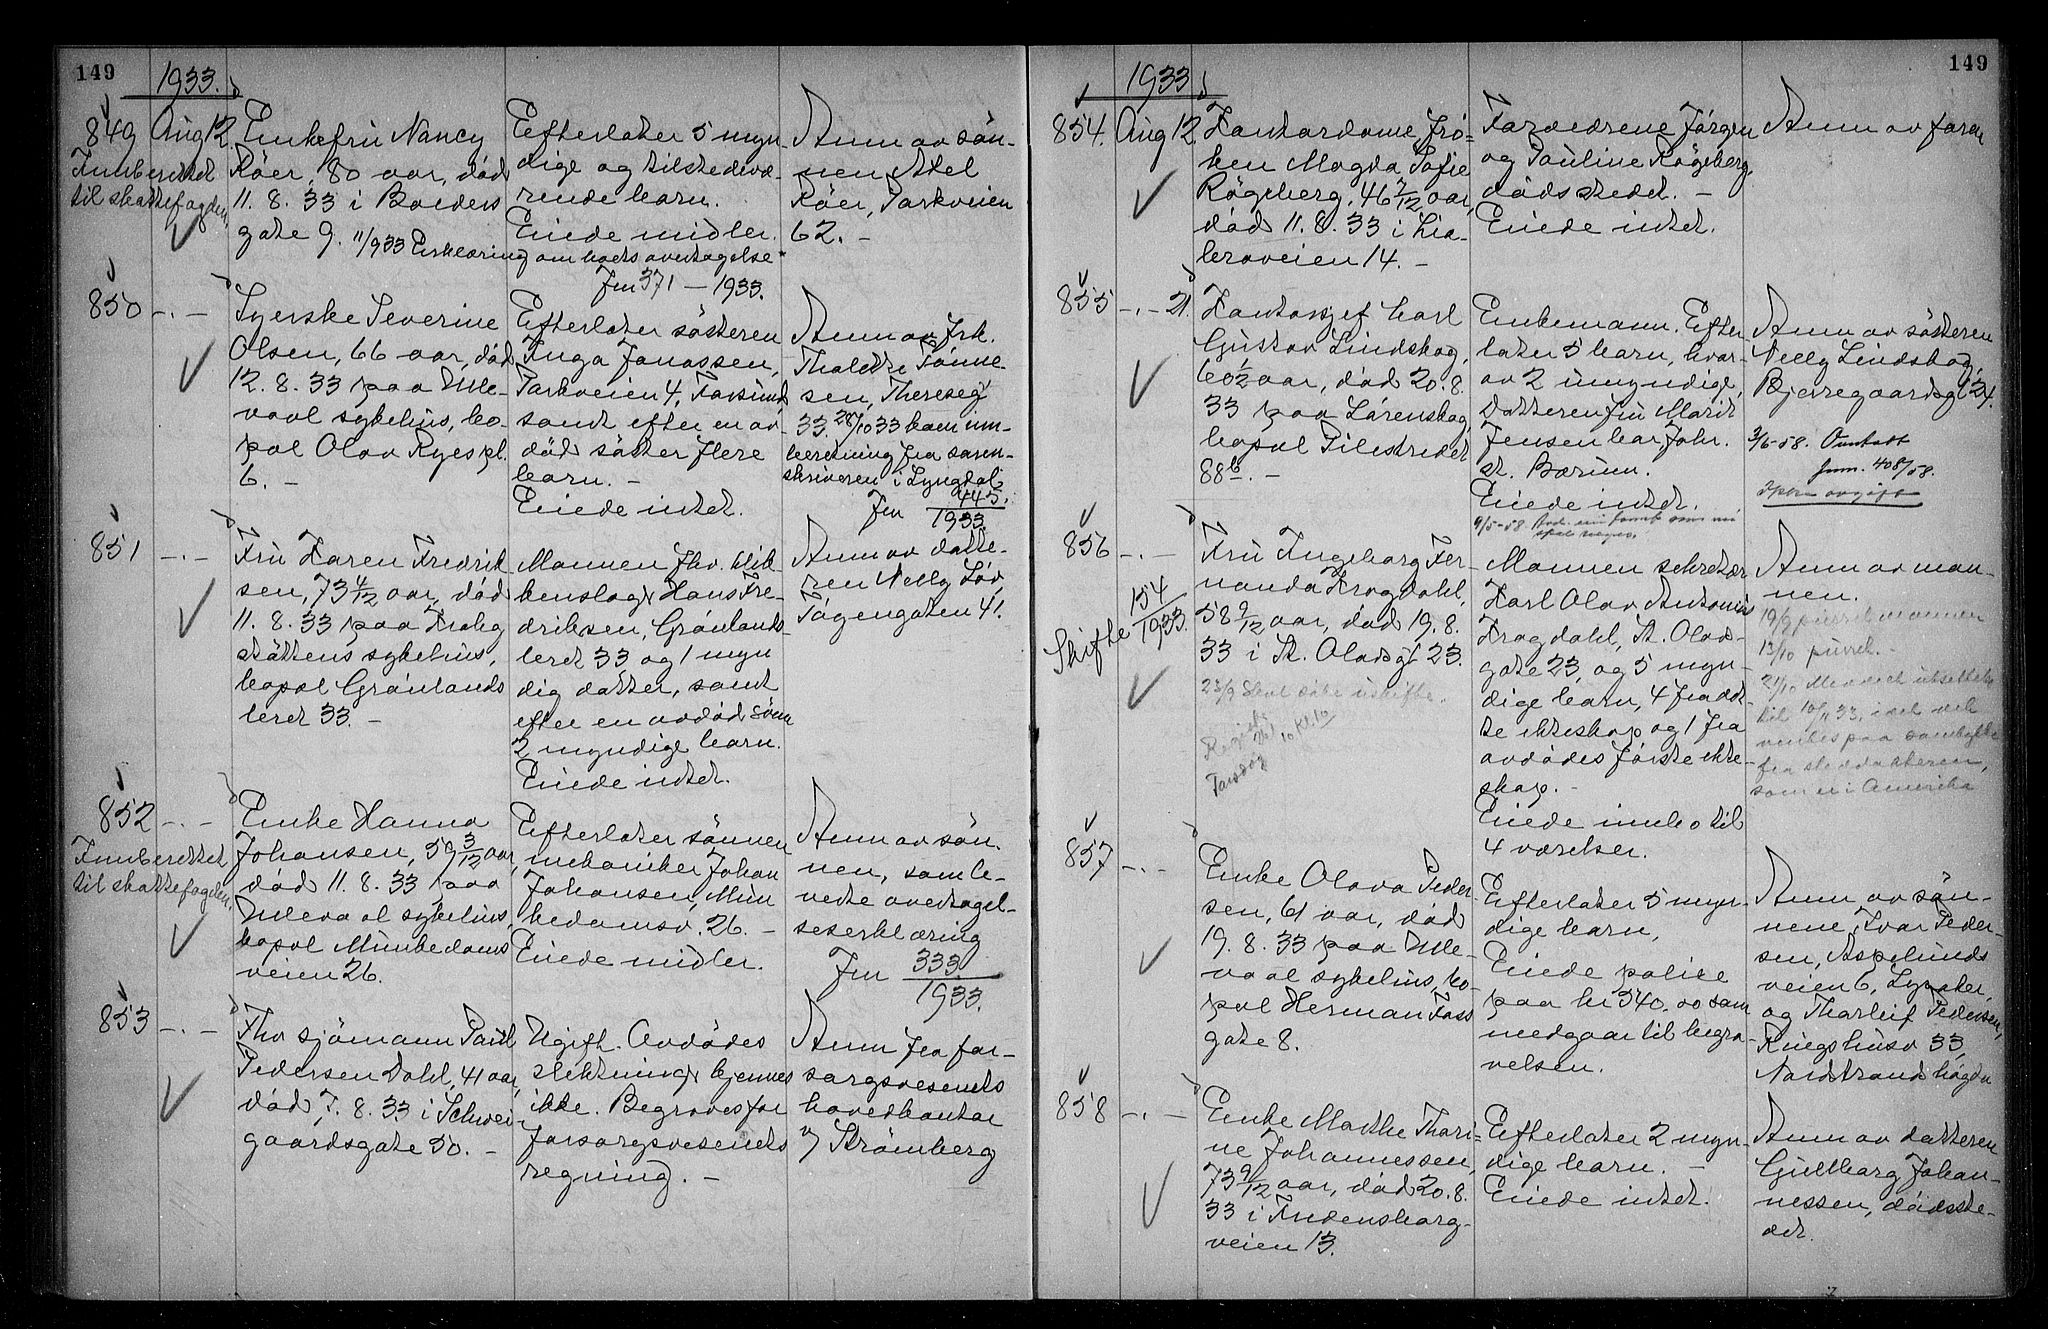 149
1933.
849 Aug 12.
Innberettet
til skattefogden.
Enkefru Nancy
Röer, 80 aar, död
11. 8. 33 i
gate 9. 11/9 33 Erklæring om boets overtagelse
Efterlater 5 myn
dige og tilstedevæ-
rende barn.
Eiede midler.
Jnr 371 – 1933.
Anm av sön-
nen Axel
Röer, Parkveien
62. –
850 –.–
Syerske Severine
Olsen, 66 aar, död
12. 8. 33 paa Ulle-
vaal sykehus, bo-
pæl Olav Ryes pl.
6. –
Efterlater sösteren
Inga Jonassen,
Parkveien 4, Farsund
samt efter en av-
död söster flere
barn. –
Eiede intet.
Anm av frk.
Tönne-
sen, Theresesg
33. 28/10 33 kom inn-
beretning fra soren-
skriveren i Lyngdal
Jnr 445/1933.
851 –.–
Fru Karen Fredrik
sen, 73 4/12 aar, död
11. 8. 33 paa Krohg
stöttens sykehus,
bopæl Grönlands
leret 33. –
Mannen fhv.
Hans Fre-
driksen, Grönlands-
leret 33 og 1 myn
dig datter, samt
efter en avdöd sönn
2 myndige barn.
Eiede intet.
Anm av datte-
ren Nelly
Tögengaten 41.
852 –.–
Innberettet
til skattefogden.
Enke Hanna
Johansen, 59 3/12 aar,
död 11. 8. 33 paa
Ulleva al sykehus,
bopæl Munkedams
veien 26.
Efterlater sönnen
mekaniker Johan
Johansen, Mun
kedamsv. 26. –
Eiede midler.
Anm av sön.
nen, som le-
verte overtagel-
seserklæring
Jnr 333/1933.
853 –.–
Fhv sjömann Paul
Pedersen Dahl, 41 aar,
död 7. 8. 33 i Schwei-
gaardsgate 50. –
Ugift. Avdödes
slektninger kjennes
ikke. Begraves for
forsorgsvesenets
regning. –
Anm fra for-
sorgsvesenets
hovedkontor
v/ Strömberg
149
1933
854. Aug 12.
Kontordame frö-
ken Magda Sofie
Rögeberg, 46 7/12 aar,
död 11. 8. 33 i Lia-
broveien 14. –
Forældrene Jörgen
og Pauline Rögeberg,
dödsstedet. –
Eiede intet.
Anm av faren
855 –.– 21.
Kontorsjef Carl
Gustav Lindskog,
60 1/2 aar, död 20. 8.
33 paa Lörenskog
bopæl Pilestredet
88b. –
Enkemann. Efter
later 5 barn, hvor-
av 2 umyndige,
Datteren fru Marit
Jensen bor Johr.
st. Bærum.
Eiede intet.
9/5-58.
Anm av sösteren
Nelly Lindskog,
Bjerregaardsgt 24.
3/6-58. Omtalt
Jnr. 408/58.
856 –.–
Skifte 154/1933.
Fru Ingeborg Fer-
nanda Krogdahl,
58 9/12 aar, död 19. 8.
33 i St. Olavsgt 23.
23/9 Skal söke uskifte.
Mannen sekretær
Karl Olav Antonius
Krogdahl, St. Olavs-
gate 23, og 5 myn-
dige barn, 4 fra det-
te ekteskap og 1 fra
avdödes förste ekte-
skap. –
Eiede innbo til
4 værelser.
Anm av man-
nen.
19/9 purret mannen
13/10 purret. –
21/10 utsettelse
til 10/11 33,
ventes paa samtykke
fra steddatteren,
som er i Amerika
857 –.–
Enke Olava Peder-
sen, 61 aar, död
19. 8. 33 paa Ulle-
vaal sykehus, bo-
pæl Herman Foss
gate 8.
Efterlater 5 myn-
dige barn,
Eiede police
paa kr 340.00 som
medgaar til begra-
velsen.
Anm av sön-
nene, Ivar Peder-
sen, Aspelunds
veien 6, Lysaker,
og Thorleif Pedersen,
Ringshusv 33,
Nordstrandshögda
858 –.–
Enke Marthe Thori-
ne Johannessen,
73 9/12 aar, död 20. 8.
33 i Fredensborg-
veien 13.
Efterlater 2 myn-
dige barn. –
Eiede intet.
Anm av datteren
Gudborg Johan-
nessen, dödsste-
det.